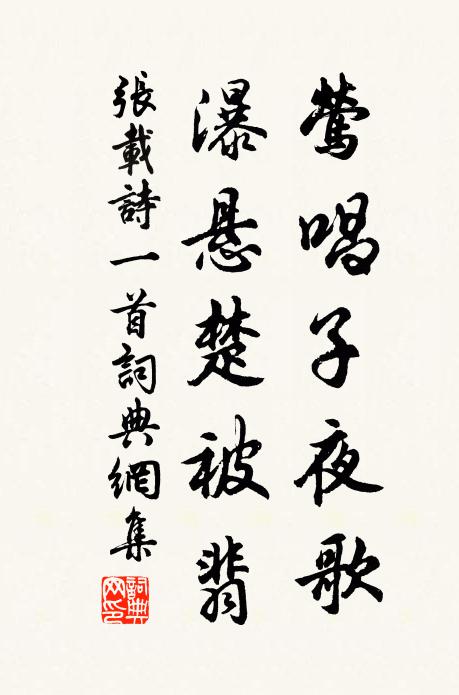 鶯唱子夜歌
瀑悬楚被翡
張載詩一首詞典網集
詞典网印